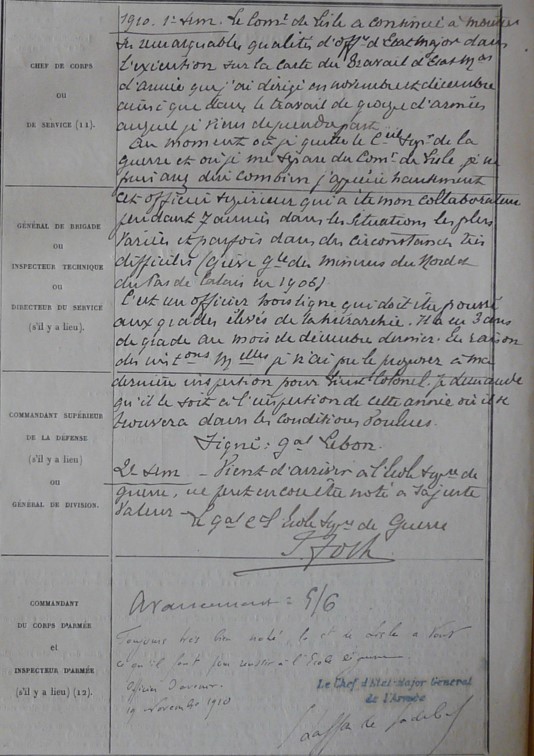 CHEF DE CORPS
OU
DE SERVICE (11).
GÉNÉRAL DE BRIGADE
OU
INSPECTEUR TECHNIQUE
OU
DIRECTEUR DU SERVICE
(s'il y a lieu).
COMMANDANT SUPÉRIEUR
DE LA DÉFENSE
(s'il y a lieu)
OU
GÉNÉRAL DE DIVISION.
COMMANDANT
DU CORPS D'ARMÉE
et
INSPECTEUR D'ARMÉE
(s'il y a lieu) (12).
1910. 1er Sem. Le Comt de Lisle a continué à montrer
ses remarquables qualités d'offer d'Etat Major dans
l'exécution sur la carte du travail d'Etat Mor
d'armée que j'ai dirigé en novembre et décembre
ainsi que dans le travail de groupe d'armées
auquel je viens de prendre part.
Au moment où je quitte le Ceil Supr de la
guerre et où je me sépare du Comt de Lisle je ne
puis dire combien j'apprécie hautement
cet officier supérieur qui a été mon collaborateur
pendant 7 années dans les situations les plus
variées et parfois dans des circonstances très
difficiles (grève gle des mineurs du Nord et
du Pas de Calais en 1906)
C'est un officier hors ligne qui doit être poussé
aux grades élevés de la hiérarchie. Il a eu 3 ans
de grade au mois de décembre dernier. En raison
des instons Melles je n'ai pu le proposer à ma
dernière inspection pour Lieut Colonel. Je demande
qu'il le soit à l'inspection de cette année où il se
trouvera dans les conditions voulues.
Signé: gal Lebon.
2e Sem _ Vient d'arriver à l'Ecole Supre de
guerre, ne peut encore être noté à sa juste
valeur _ Le gal Ct l'Ecole Supre de Guerre
F. Foch
Avancement = 5/6
Toujours très bien noté, le Ct de Lisle a tout
ce qu'il faut pour réussir à l'Ecole de guerre
Officier d'avenir.
19 Novembre 1910
Le Chef d'Etat-Major Général
de l'Armée